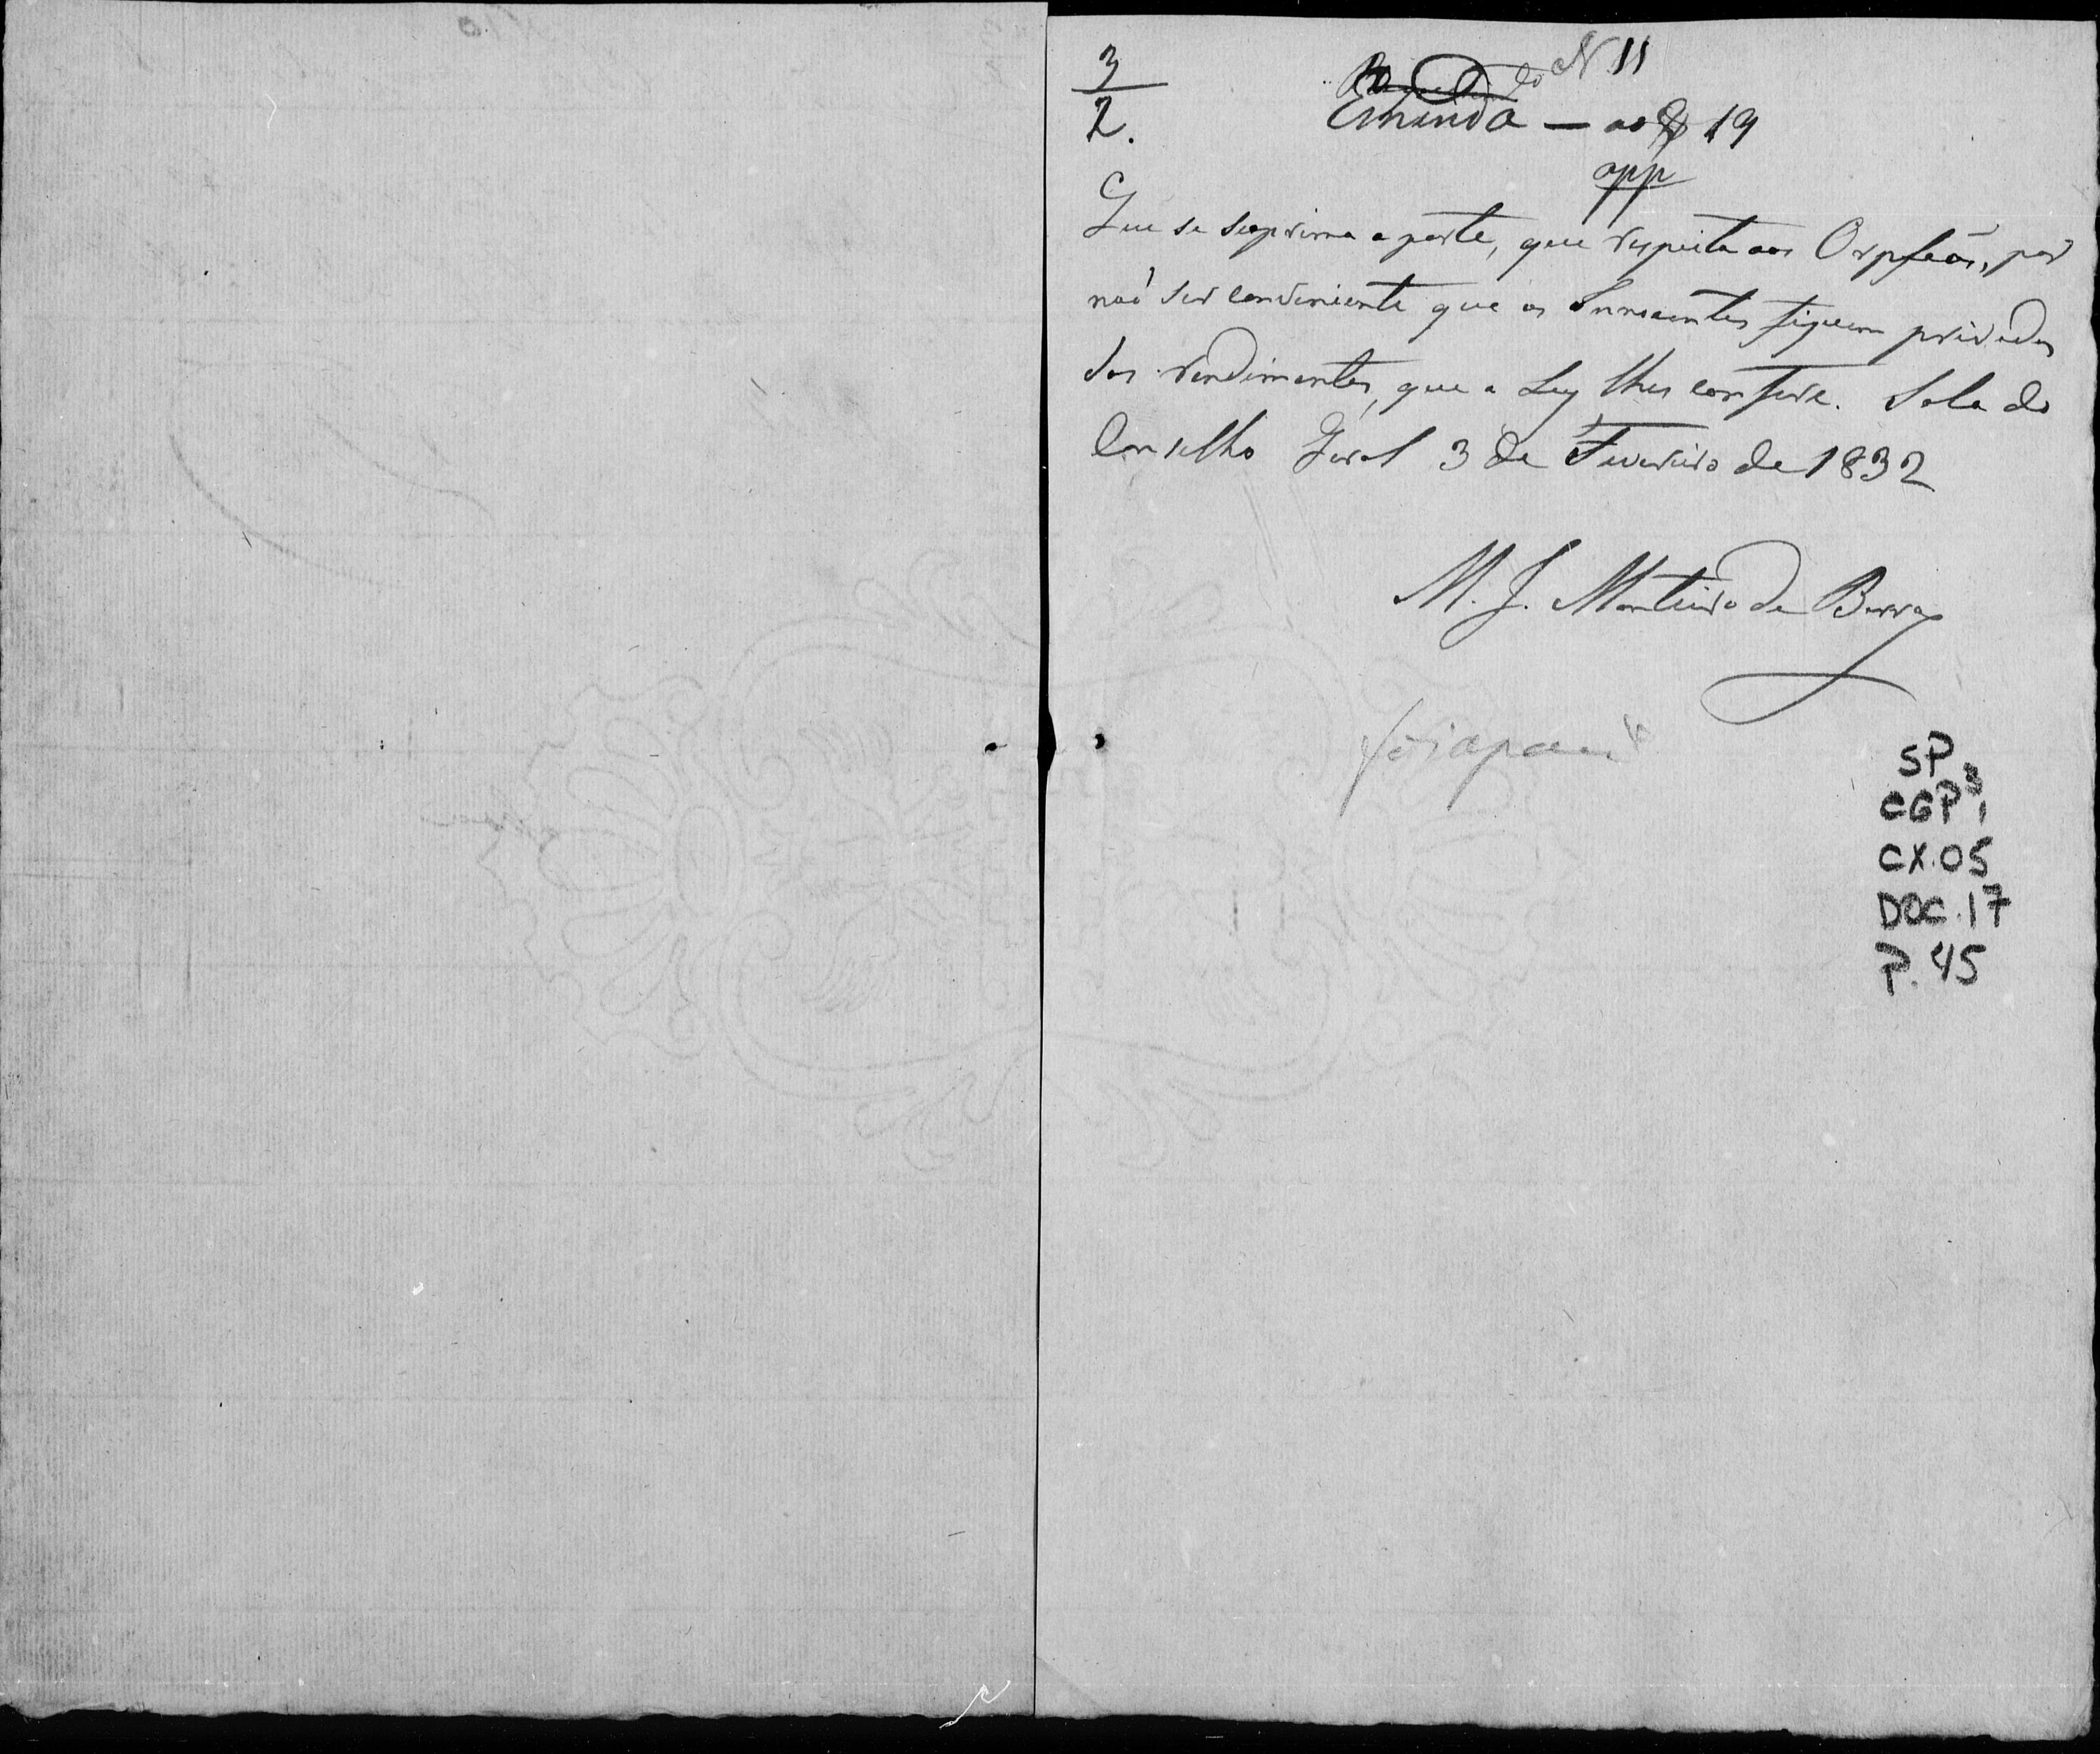 N 11
3
2.
Emenda — ao § 19
app
Que se suprima a parte, que respeita aos Orpfaõs, por
naõ ser conveniente que os Innocentes fiquem privados
dos rendimentos, que a Ley lhes confere. Sala do
Conselho Geral 3 de Fevereiro de 1832
M. J. Monteiro de Barros
SP
CGP 3,1
CX.05
DOC.17
P.45